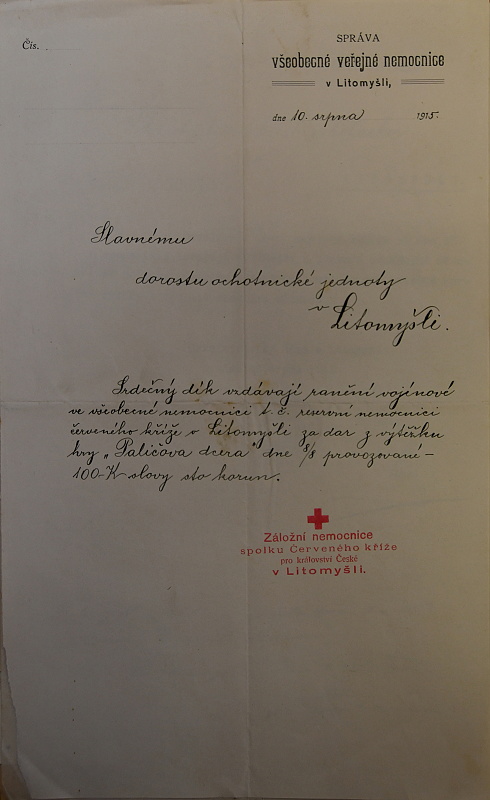 Čís.
SPRÁVA
všeobecné veřejné nemocnice
v Litomyšli,
dne 10. srpna 1915.
Slavnému
dorostu ochotnické jednoty
v
Litomyšli.
Srdečný dík vzdávají ranění vojínové
ve všeobecné nemocnici t. č. reservní nemocnici
červeného kříže v Litomyšli za dar z výtěžku
hry „Paličova dcera" dne 8/8 provozované –
100-K slovy sto korun.
Záložní nemocnice
spolku Červeného kříže
pro království České
v Litomyšli.